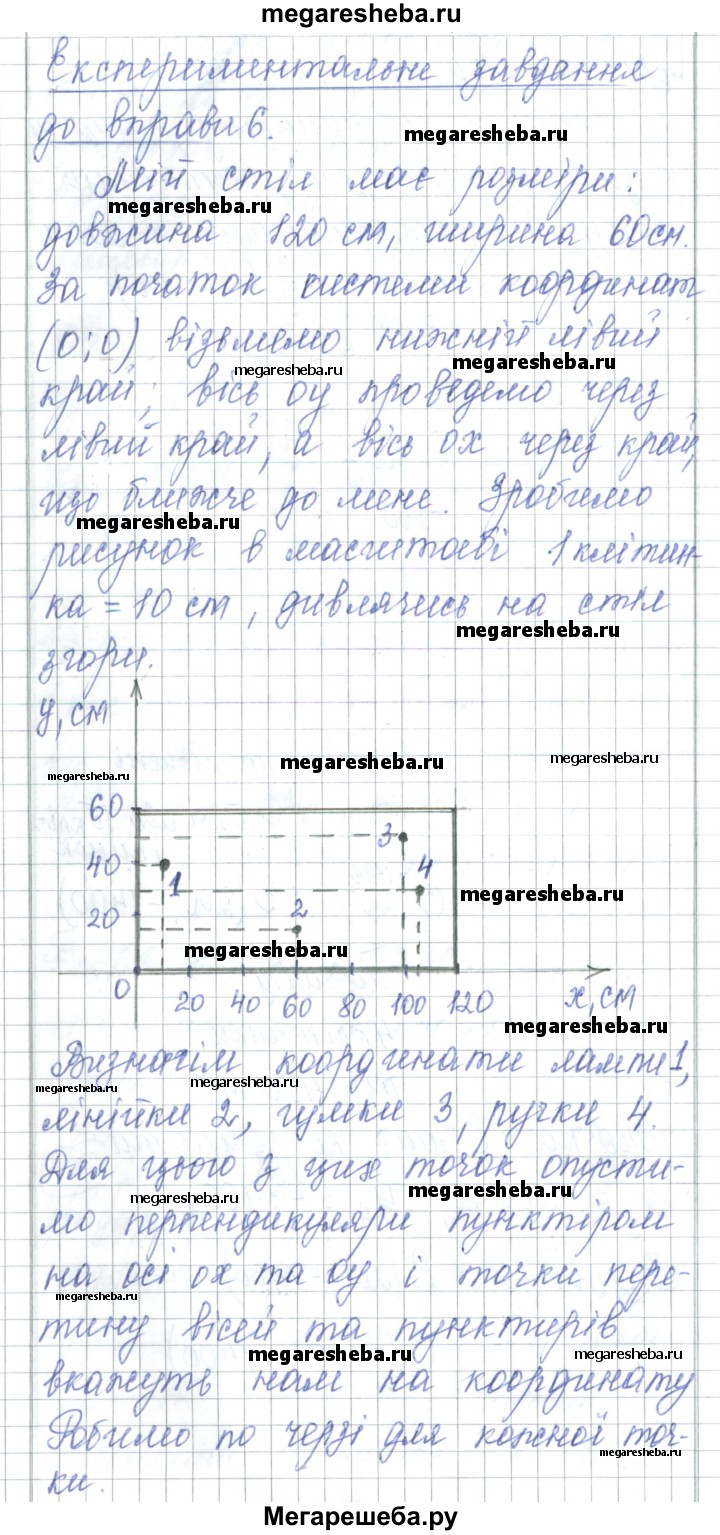 megaresheba.ru
Експериментальне завдання
до вправи 6.
megaresheba.ru
Мій стіл має розміри:
megaresheba.ru
довжина 120 см, ширина 60 см.
За початок системи координат
(0; 0) візьмемо нижній лівий
megaresheba.ru
megaresheba.ru
край; вісь оу проведемо через
лівий край, а вісь ох через край,
що ближче до мене. Зробимо
megaresheba.ru
рисунок в масштабі 1 клітин-
ка = 10 см, дивлячись на стіл
megaresheba.ru
згори.
y, см
megaresheba.ru
megaresheba.ru
megaresheba.ru
60
3
40
1
4
megaresheba.ru
20
2
megaresheba.ru
0 20 40 60 80 100 120 x, см
megaresheba.ru
Визначім координати лампи 1,
megaresheba.ru
megaresheba.ru
лінійки 2, гумки 3, ручки 4.
Для цього з цих точок опусти-
megaresheba.ru
megaresheba.ru
мо перпендикуляри пунктіром
на осі ох та оу і точки пере-
megaresheba.ru
тину вісей та пунктирів
megaresheba.ru
megaresheba.ru
вкажуть нам на координату
Робимо по черзі для кожної точ-
megaresheba.ru
ки.
Мегарешеба.ру